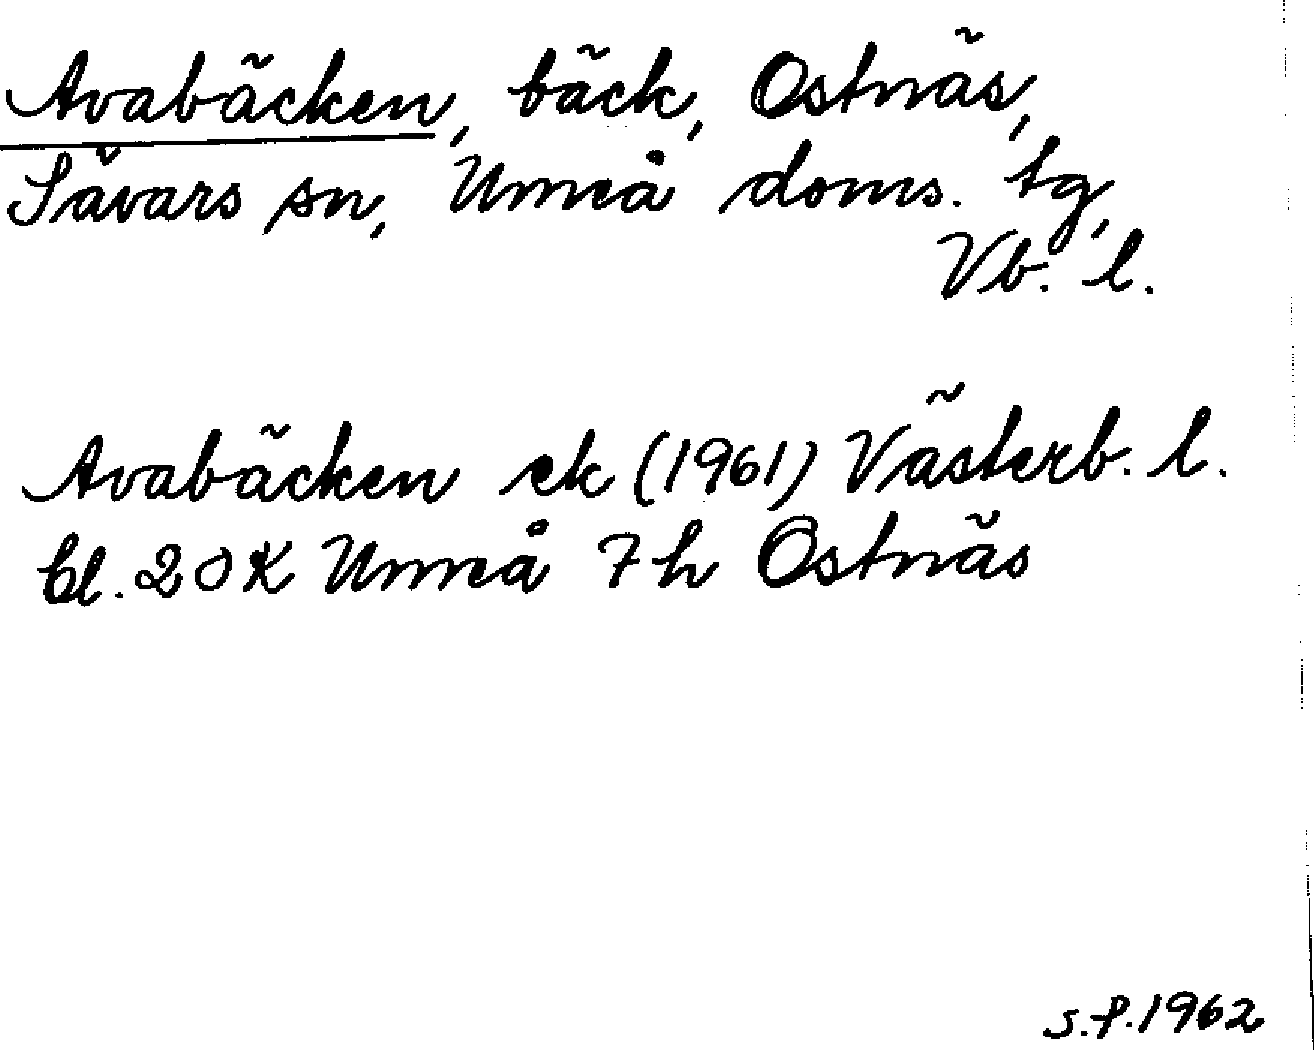 Avabäcken, bäck, Ostnäs,
Sävars sn, Umeå doms. tg,
Vb. l.
Avabäcken ek (1961) Västerb. l.
bl. 20K Umeå 7h Ostnäs
S.f. 1962